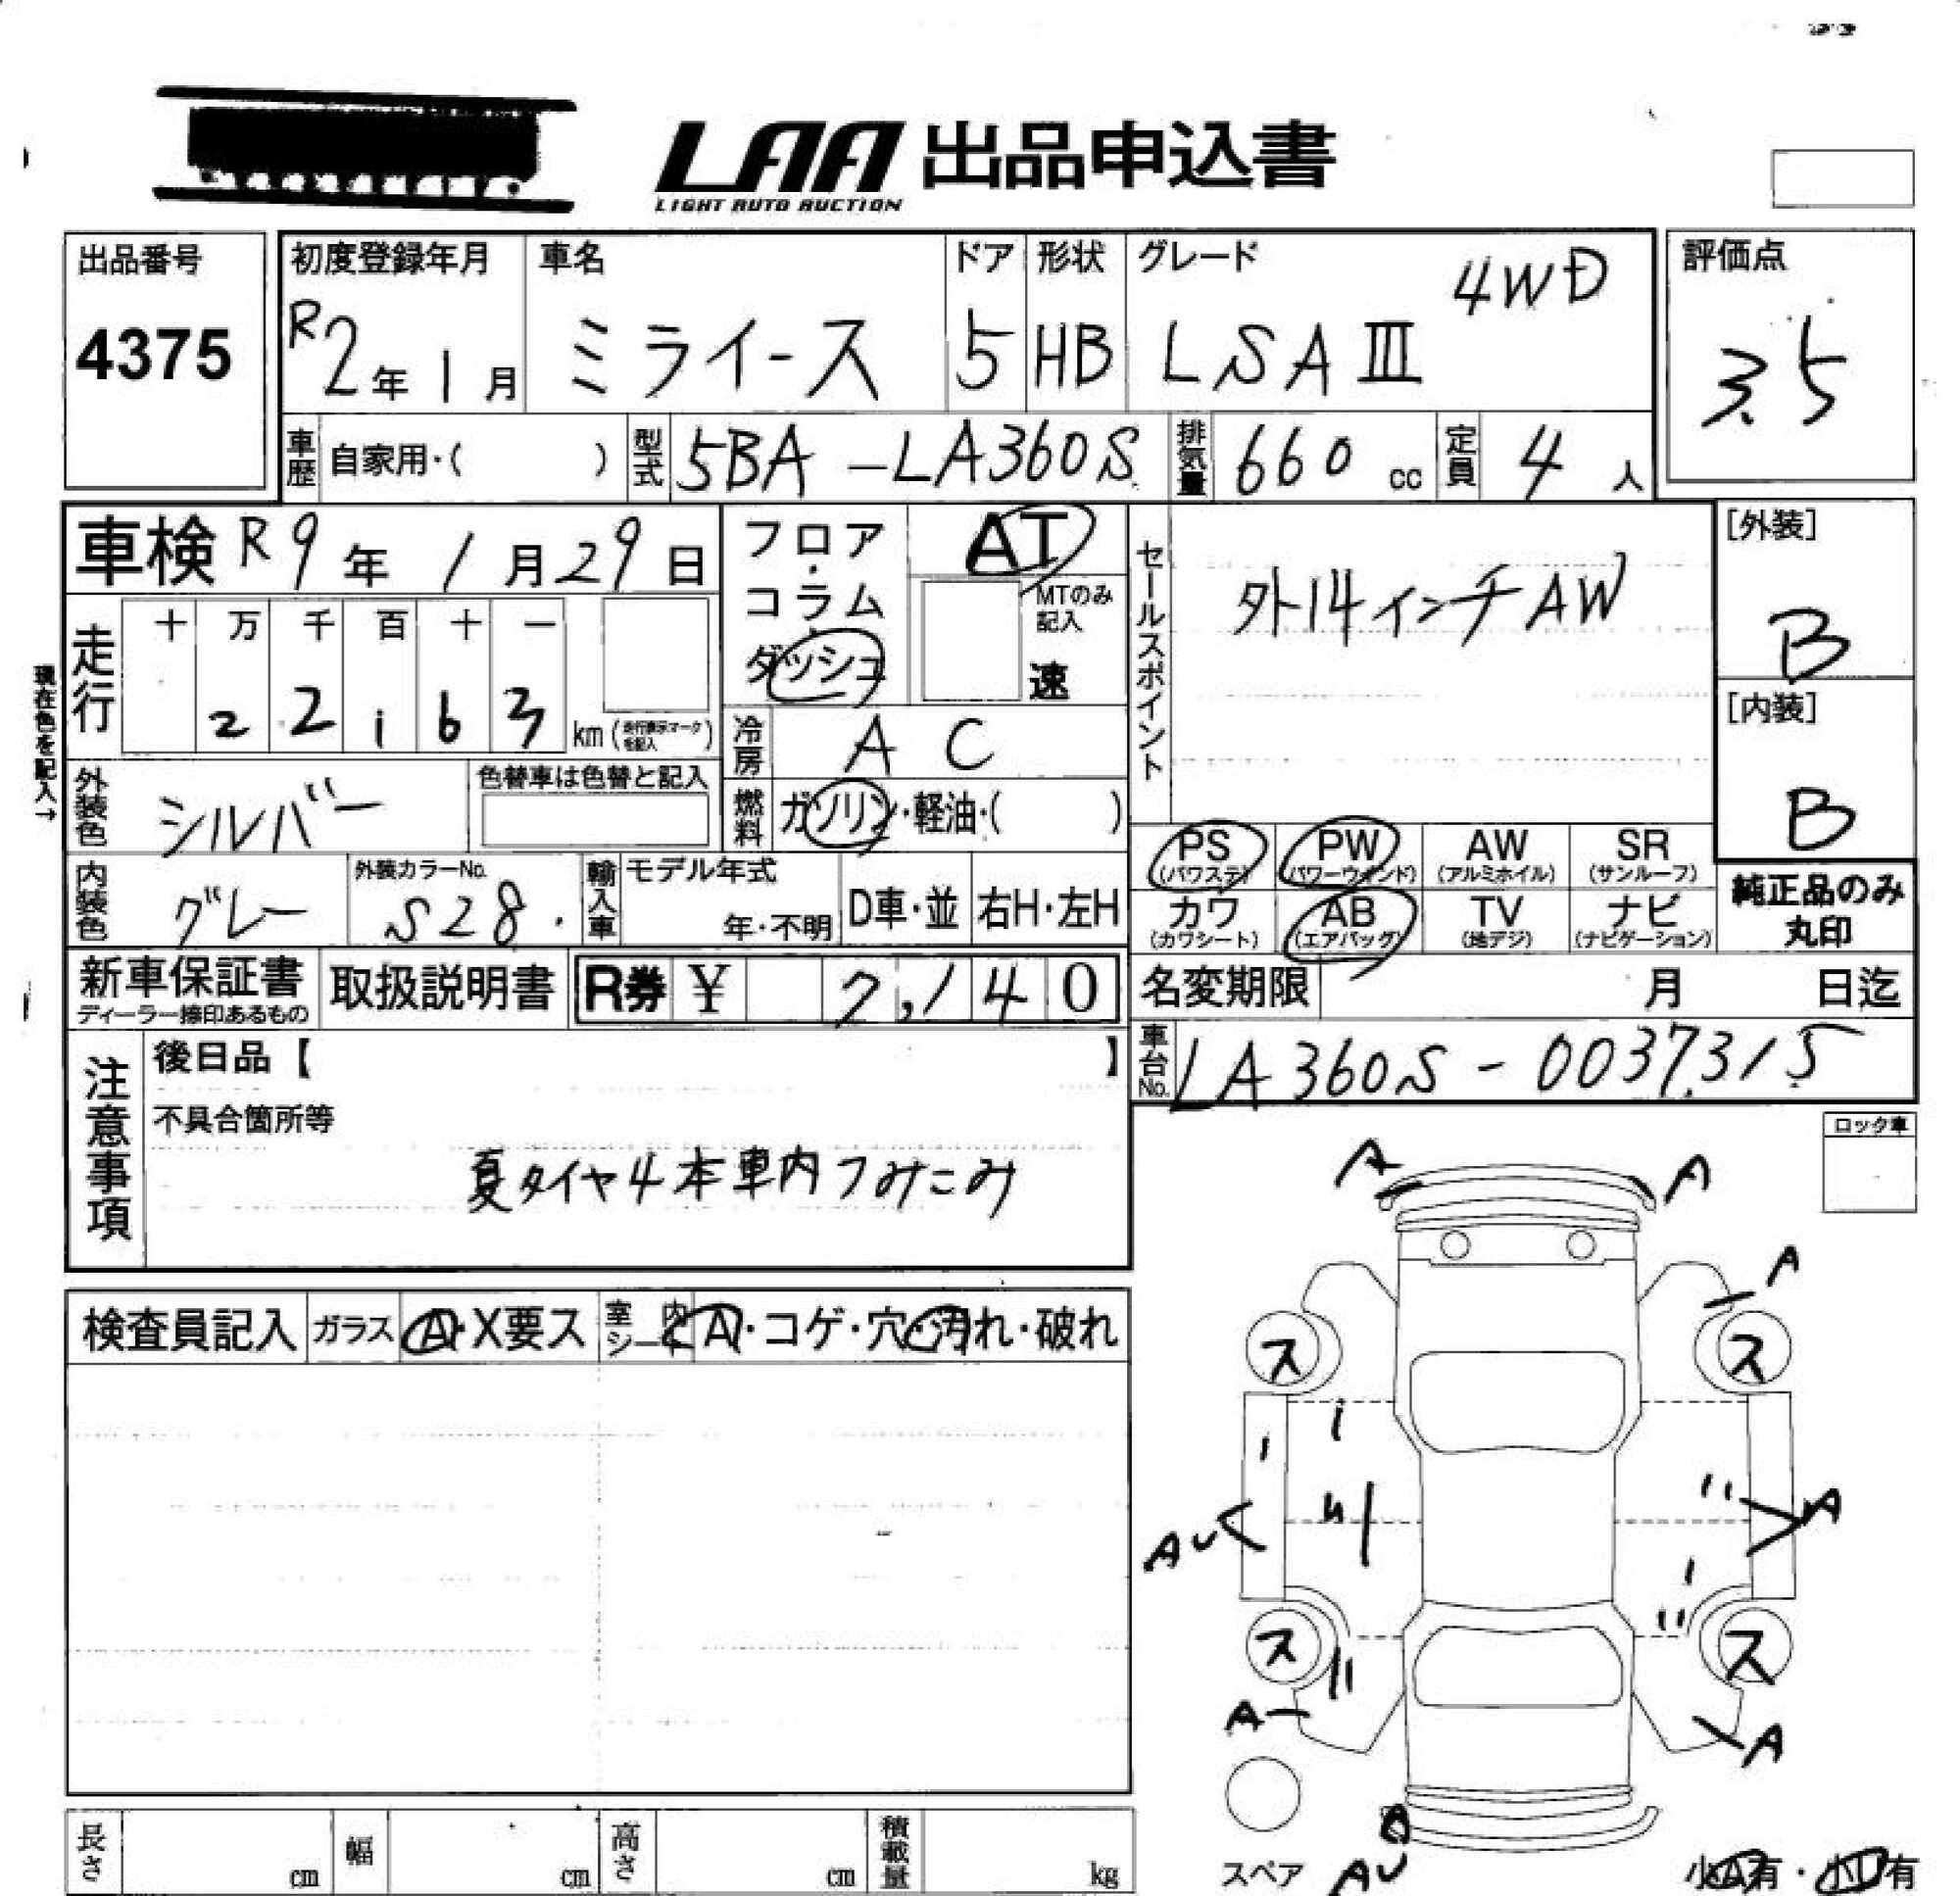 LAA 出品申込書
LIGHT AUTO AUCTION
出品番号
4375
初度登録年月
R2年1月
車名
ミライース
ドア
5
形状
HB
グレード
4WD
LSAⅢ
評価点
3.5
車歴 自家用・( )
型式 5BA-LA360S
排気量 660 cc
定員 4 人
車検 R9年1月29日
フロア・コラム・ダッシュ
AT
MTのみ記入
速
セールスポイント
外14インチAW
[外装]
B
[内装]
B
現在色を記入→
走行
十 万 千 百 十 一
2 2 1 6 3 km (走行表示マークを記入)
冷房 AC
外装色 シルバー
色替車は色替と記入
燃料 ガソリン・軽油・( )
PS (パワステ)
PW (パワーウインド)
AW (アルミホイル)
SR (サンルーフ)
カワ (カワシート)
AB (エアバッグ)
TV (地デジ)
ナビ (ナビゲーション)
純正品のみ
丸印
内装色 グレー
外装カラーNo.
S28
輸入車
モデル年式
年・不明
D車・並
右H・左H
新車保証書
ディーラー捺印あるもの
取扱説明書
R券 ¥ 7,140
名変期限 月 日迄
車台No. LA360S-0037315
注意事項
後日品【 】
不具合箇所等
夏タイヤ4本車内つみこみ
ロック車
検査員記入
ガラス A・X要ス
室内シート A・コゲ・穴・汚れ・破れ
A A
A
ス ス
AU A
ス ス
A A
スペア
AU
小A有・小U有
長さ cm
幅 cm
高さ cm
積載量 kg